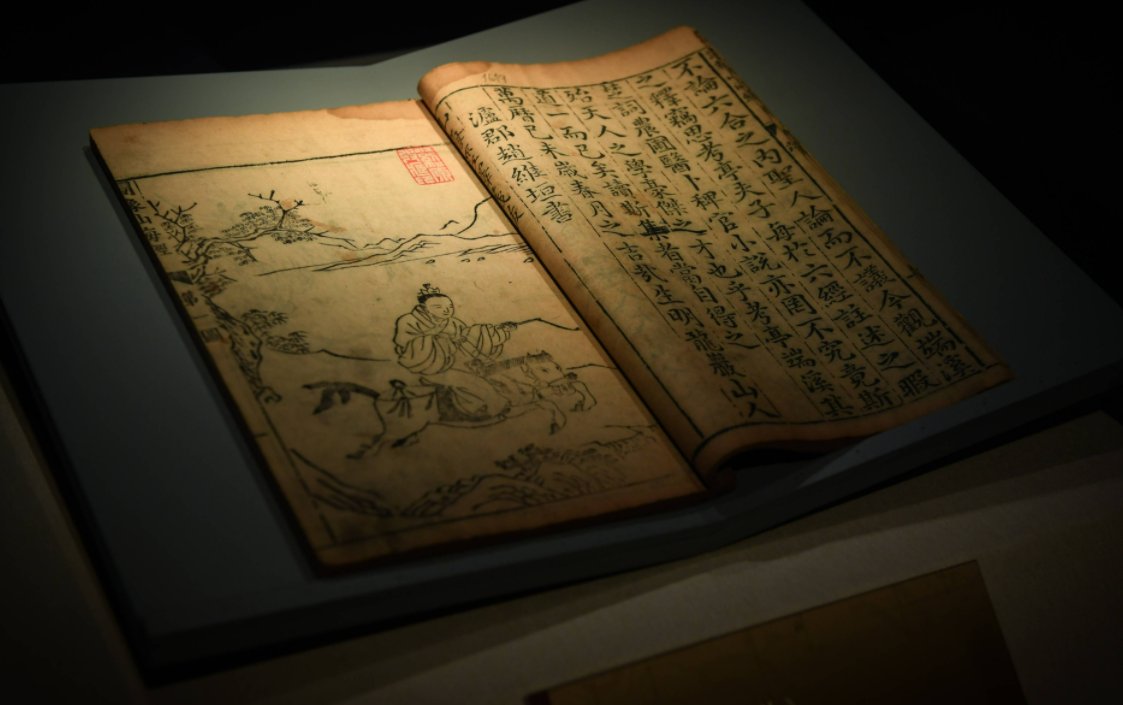 不論六合之內聖人論而不議今觀端溪
之釋竊思考亭夫子每於六經註述之暇
之詞農圃醫卜稗官小說亦罔不究竟斯
殆天人之學豪傑之才也乎考亭端溪其
道一而已矣讀斯集者當自得之
萬曆己未歲春月之吉卦生明龍巖山人
瀘郡趙維垣書